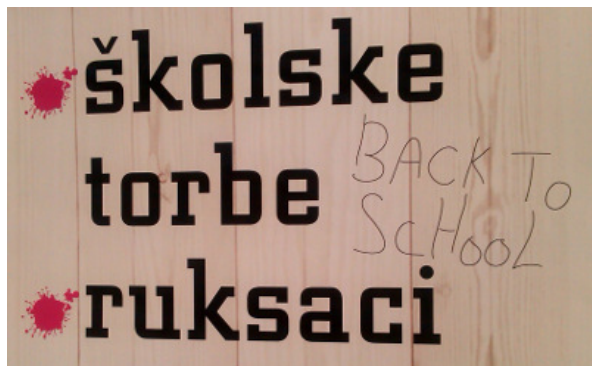 školske
torbe
BACK TO
SCHOOL
ruksaci